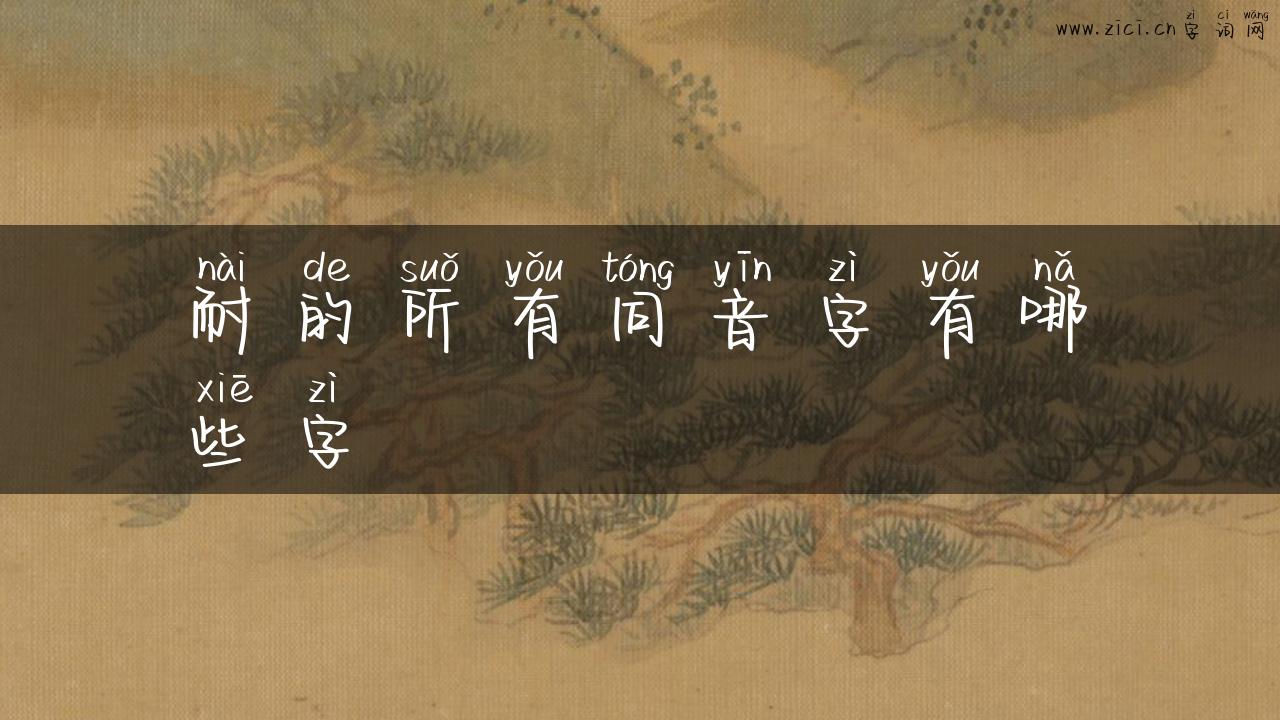 zì cí wǎng
www.zici.cn 字词网
nài de suǒ yǒu tóng yīn zì yǒu nǎ
耐的所有同音字有哪
xiē zì
些字